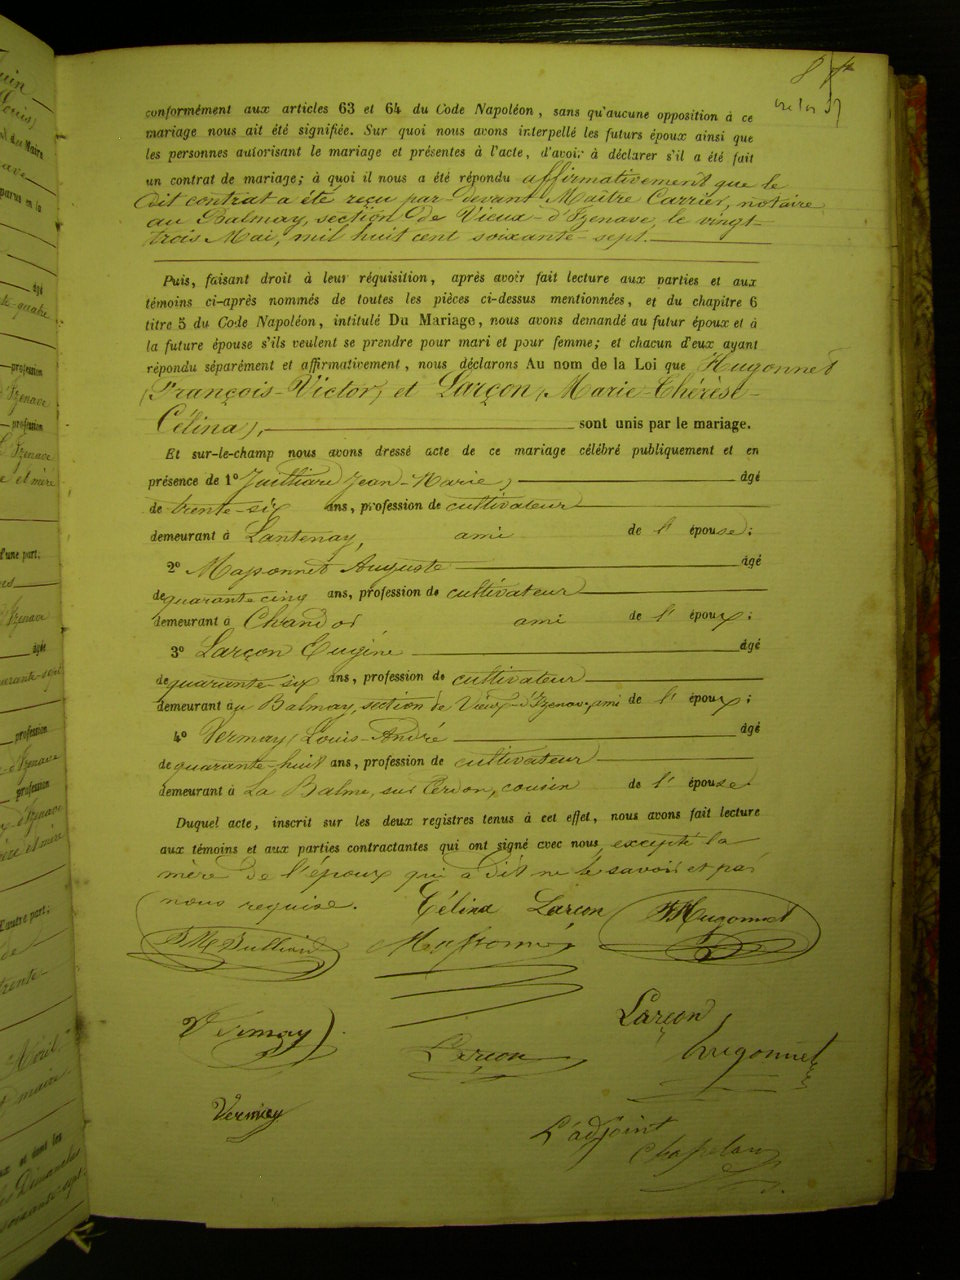 8
conformément aux articles 63 et 64 du Code Napoléon, sans qu'aucune opposition à ce
mariage nous ait été signifiée. Sur quoi nous avons interpellé les futurs époux ainsi que
les personnes autorisant le mariage et présentes à l'acte, d'avoir à déclarer s'il a été fait
un contrat de mariage; à quoi il nous a été répondu affirmativement que le
dit contrat a été reçu par-devant Maître Carrier, notaire
au Balmay, section de Vieux-d'Izenave, le vingt-
trois Mai, mil huit cent soixante-sept.
Puis, faisant droit à leur réquisition, après avoir fait lecture aux parties et aux
témoins ci-après nommés de toutes les pièces ci-dessus mentionnées, et du chapitre 6
titre 5 du Code Napoléon, intitulé Du Mariage, nous avons demandé au futur époux et à
la future épouse s'ils veulent se prendre pour mari et pour femme; et chacun d'eux ayant
répondu séparément et affirmativement, nous déclarons Au nom de la Loi que Hugonnet
(François-Victor) et Larçon, Marie-Thérèse-
Célina), sont unis par le mariage.
Et sur-le-champ nous avons dressé acte de ce mariage célébré publiquement et en
présence de 1º Juilliard Jean-Marie, âgé
de trente-six ans, profession de cultivateur
demeurant à Lantenay, ami de l'épouse;
2º Maponnet Auguste âgé
de quarante cinq ans, profession de cultivateur
demeurant à Chandor ami de l'époux;
3º Larçon Eugène âgé
de quarante-six ans, profession de cultivateur
demeurant au Balmay, section de Vieux-d'Izenave, ami de l'époux;
4º Vermay, Louis-André âgé
de quarante-huit ans, profession de cultivateur
demeurant à La Balme, sur Cerdon, cousin de l'épouse.
Duquel acte, inscrit sur les deux registres tenus à cet effet, nous avons fait lecture
aux témoins et aux parties contractantes qui ont signé avec nous excepté la
mère de l'époux qui a dit ne le savoir et par
nous requise. Célina Larcon Hugonnet
Larçon
Larçon hugonnet
Vermey
L'adjoint